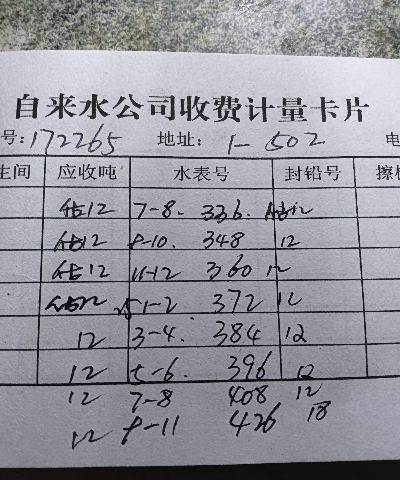 自来水公司收费计量卡片
号:172265 地址: 1-502 电
生间 应收吨 水表号 封铅号 擦
估12 7-8. 336. 12
估12 8-10. 348 12
估12 11-12 360 12
12 1-2 372 12
12 3-4. 384 12
12 5-6. 396 12
12 7-8 408 12
12 8-11 426 18